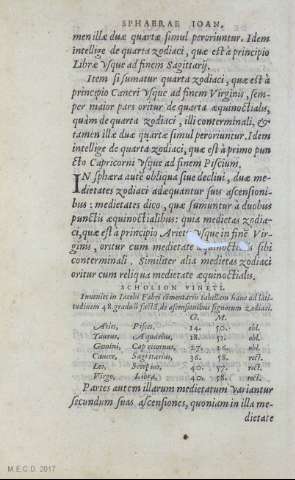 SPHAERAE IOAN.
men illæ duæ quartæ simul peroriuntur. Idem
intellige de quarta zodiaci, quæ est à principio
Libræ vsque ad finem Sagittarij.
Item si sumatur quarta zodiaci, quæ est à
principio Cancri vsque ad finem Virginis, sem-
per maior pars oritur de quarta æquinoctialis,
quàm de quarta zodiaci, illi conterminali, &
tamen illæ duæ quartæ simul peroriuntur. Idem
intellige de quarta zodiaci, quæ est à primo pun
cto Capricorni vsque ad finem Piscium.
IN sphæra autē obliqua siue decliui, duæ me-
dietates zodiaci adæquantur suis ascensioni-
bus: medietates dico, quæ sumuntur à duobus
punctis æquinoctialibus: quia medietas zodia-
ci, quæ est à principio Arietis vsque in finē Vir-
ginis, oritur cum medietate æquinoctialis sibi
conterminali. Similiter alia medietas zodiaci
oritur cum reliqua medietate æquinoctialis.
SCHOLION VINETI.
Inuenies in Iacobi Fabri cōmentario tabellam hanc ad lati-
tudinem 48 graduū factā, de ascensionibus signorum zodiaci.
G. M.
Aries, Pisces, 14. 50. obl.
Taurus, Aquarius, 18. obl.
Gemini, Capricornus, 27. obl.
Cancer, Sagittarius, 36. rect.
Leo, Scorpius, 40. rect.
Virgo, Libra, 40. rect.
Partes autem illarum medietatum variantur
secundum suas ascensiones, quoniam in illa me-
dietate
M.E.C.D. 2017